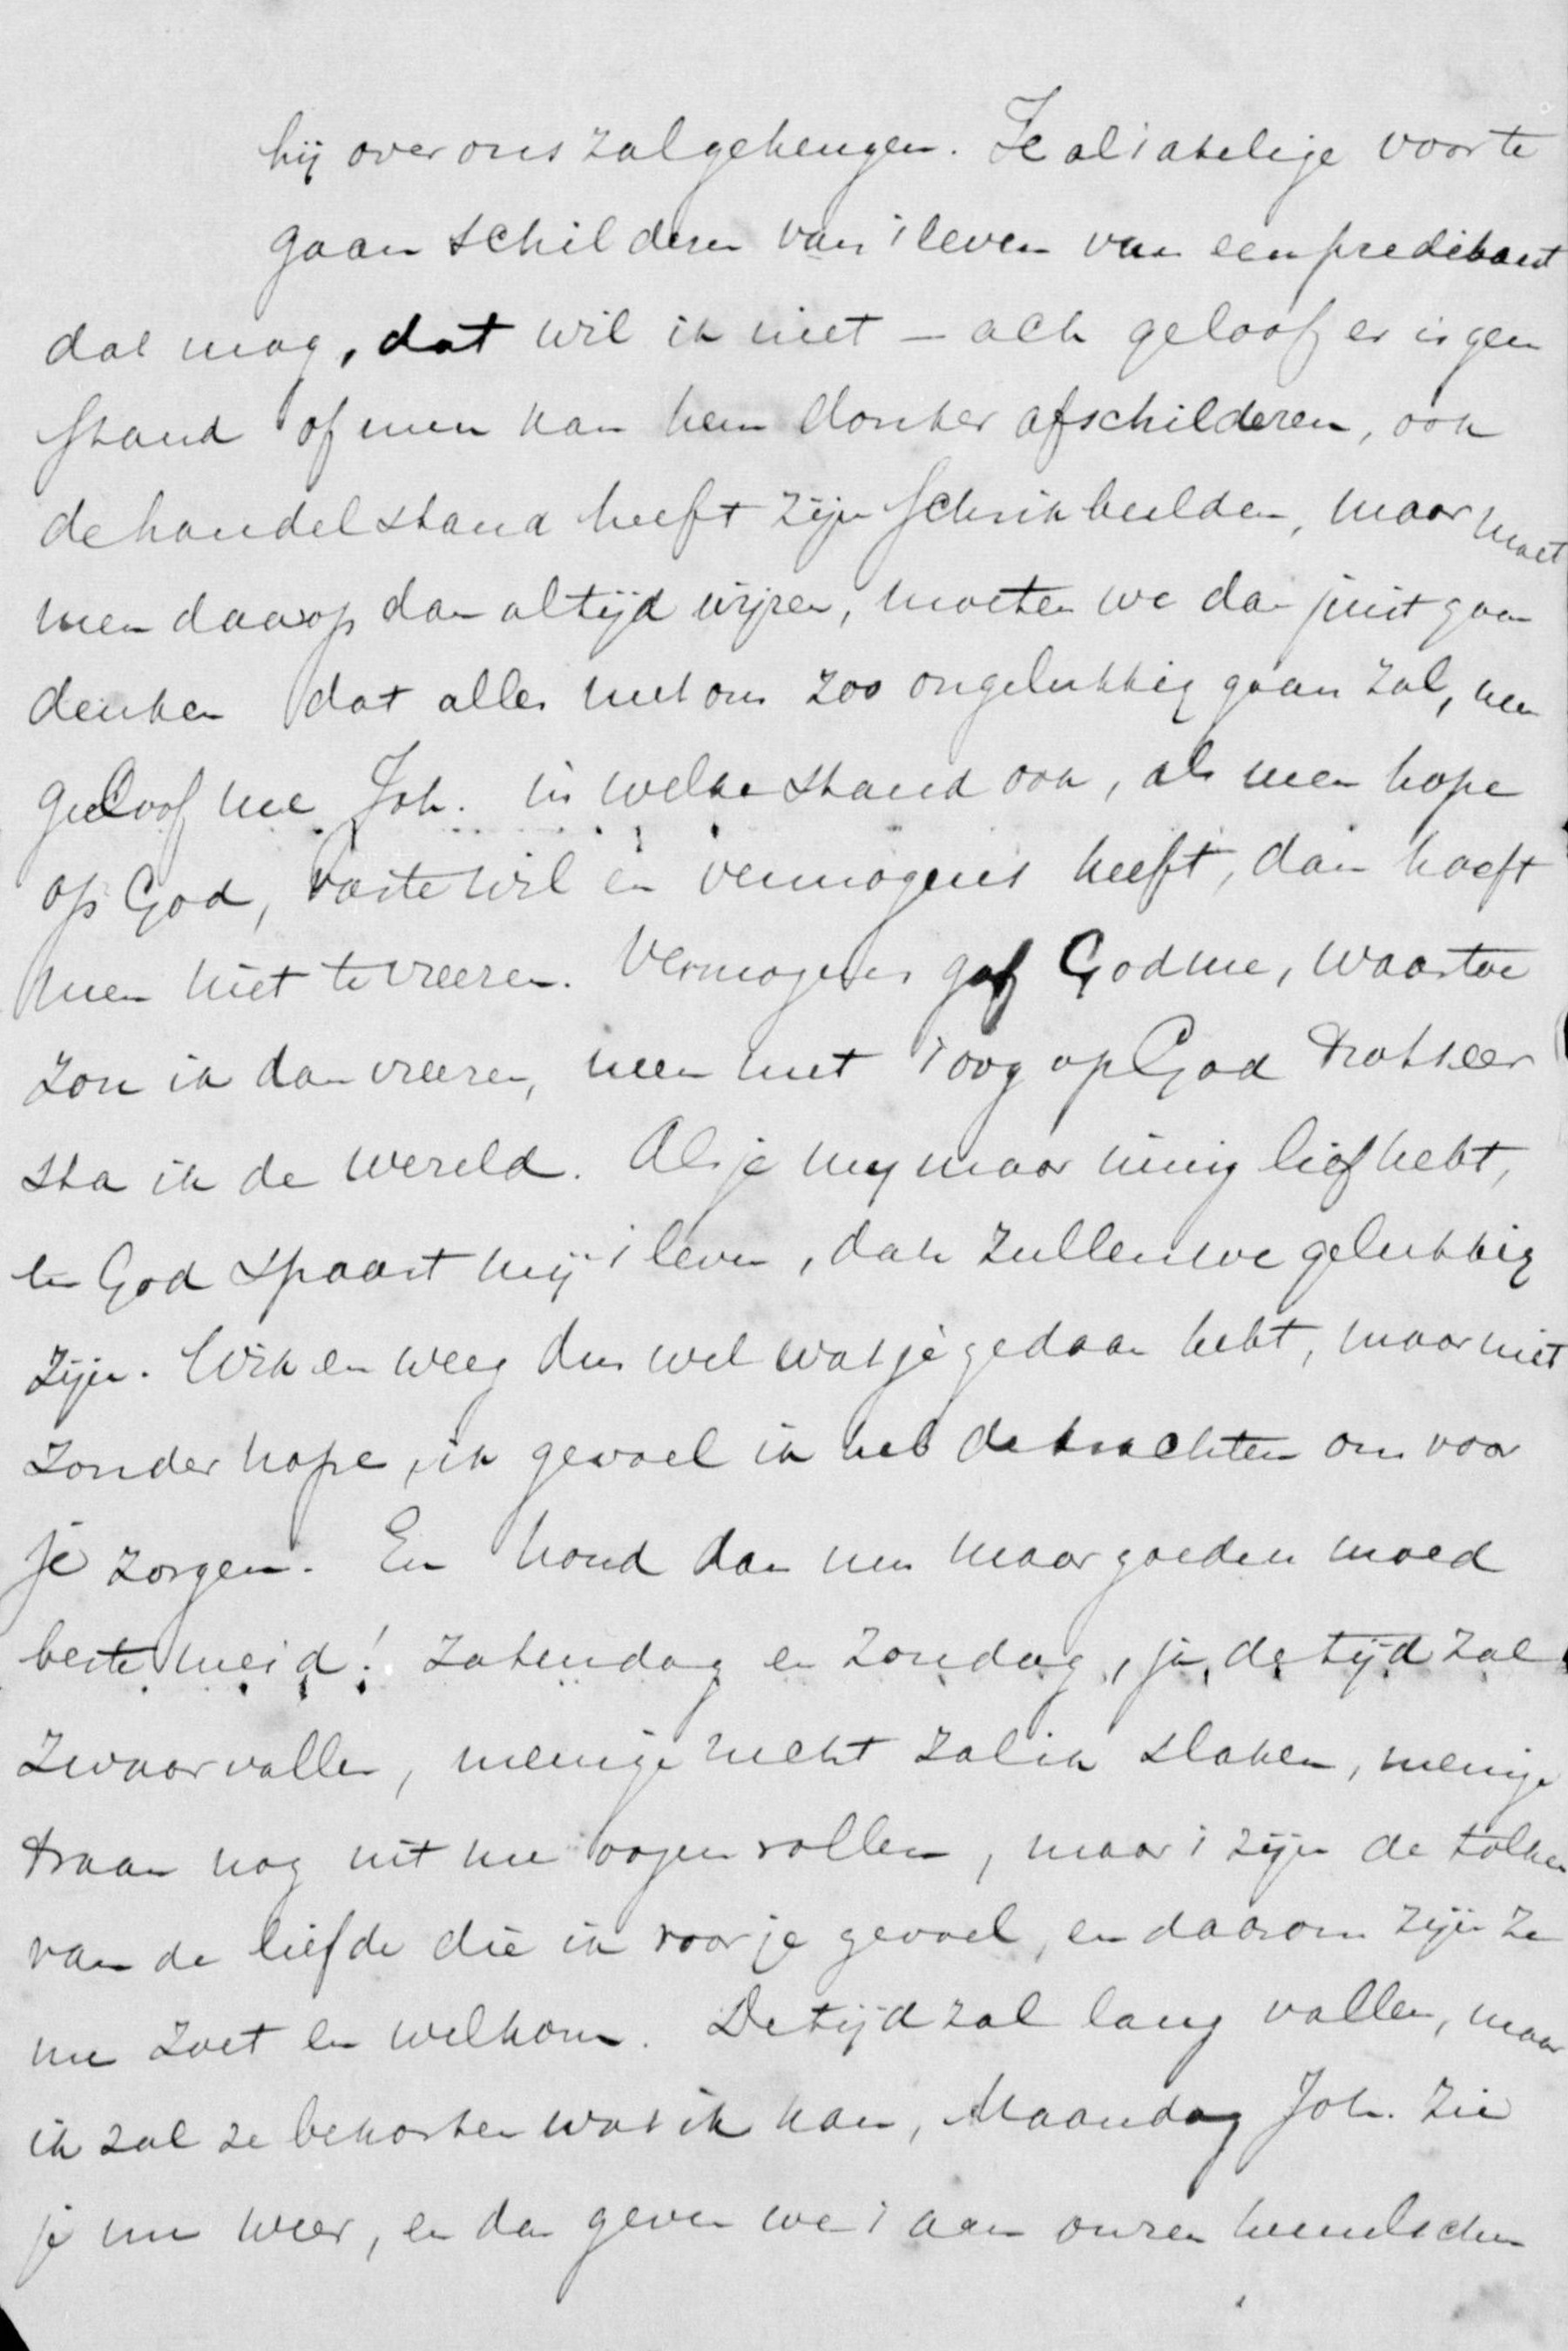 hij over ons zal gehengen. Je al 't akelige voor te
gaan schilderen van 't leven van een predikant
dat mag, dat wil ik niet – ach geloof er is geen
stand of men kan hem donker afschilderen, ook
de handelstand heeft zijn schrikbeelden, maar moet
men daarop dan altijd wijzen, moeten we dan juist gaan
denken dat alles met ons zoo ongelukkig gaan zal, neen
geloof me Joh. in welke stand ook, als men hope
op God, vaste wil en vermogens heeft, dan hoeft
men niet te vreezen. Vermogens gaf God me, waartoe
zou ik dan vreezen, neen met 't oog op God trotseer
sta ik de wereld. Als je mij maar innig liefhebt,
en God spaart mij 't leven, dan zullen we gelukkig
zijn. Wik en weeg dus wel wat je gedaan hebt, maar niet
zonder hope, ik gevoel ik heb de krachten om voor
je zorgen. En houd dan nu maar goeden moed
beste meid! Zatendag en Zondag, ja, de tijd zal
zwaar vallen, menige zucht zal ik slaken, menige
traan nog uit me oogen rollen, maar 't zijn de tolken
van de liefde die ik voor je gevoel, en daarom zijn ze
me zoet en welkom. De tijd zal lang vallen, maar
ik zal ze bekorten wat ik kan, Maandag Joh. zie
je me weer, en dan geven we 't aan onzen hemelschen